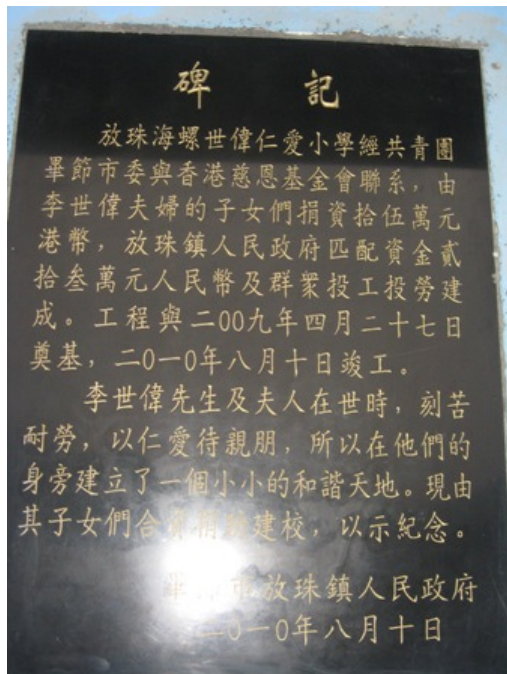 碑 記
放珠海螺世偉仁愛小學經共青團
畢節市委與香港慈恩基金會聯系，由
李世偉夫婦的子女們捐資拾伍萬元
港幣，放珠鎮人民政府匹配資金貳
拾叁萬元人民幣及群眾投工投勞建
成。工程與二00九年四月二十七日
奠基，二0一0年八月十日竣工。
李世偉先生及夫人在世時，刻苦
耐勞，以仁愛待親朋，所以在他們的
身旁建立了一個小小的和諧天地。現由
其子女們合資捐建校，以示紀念。
畢節市放珠鎮人民政府
二0一0年八月十日